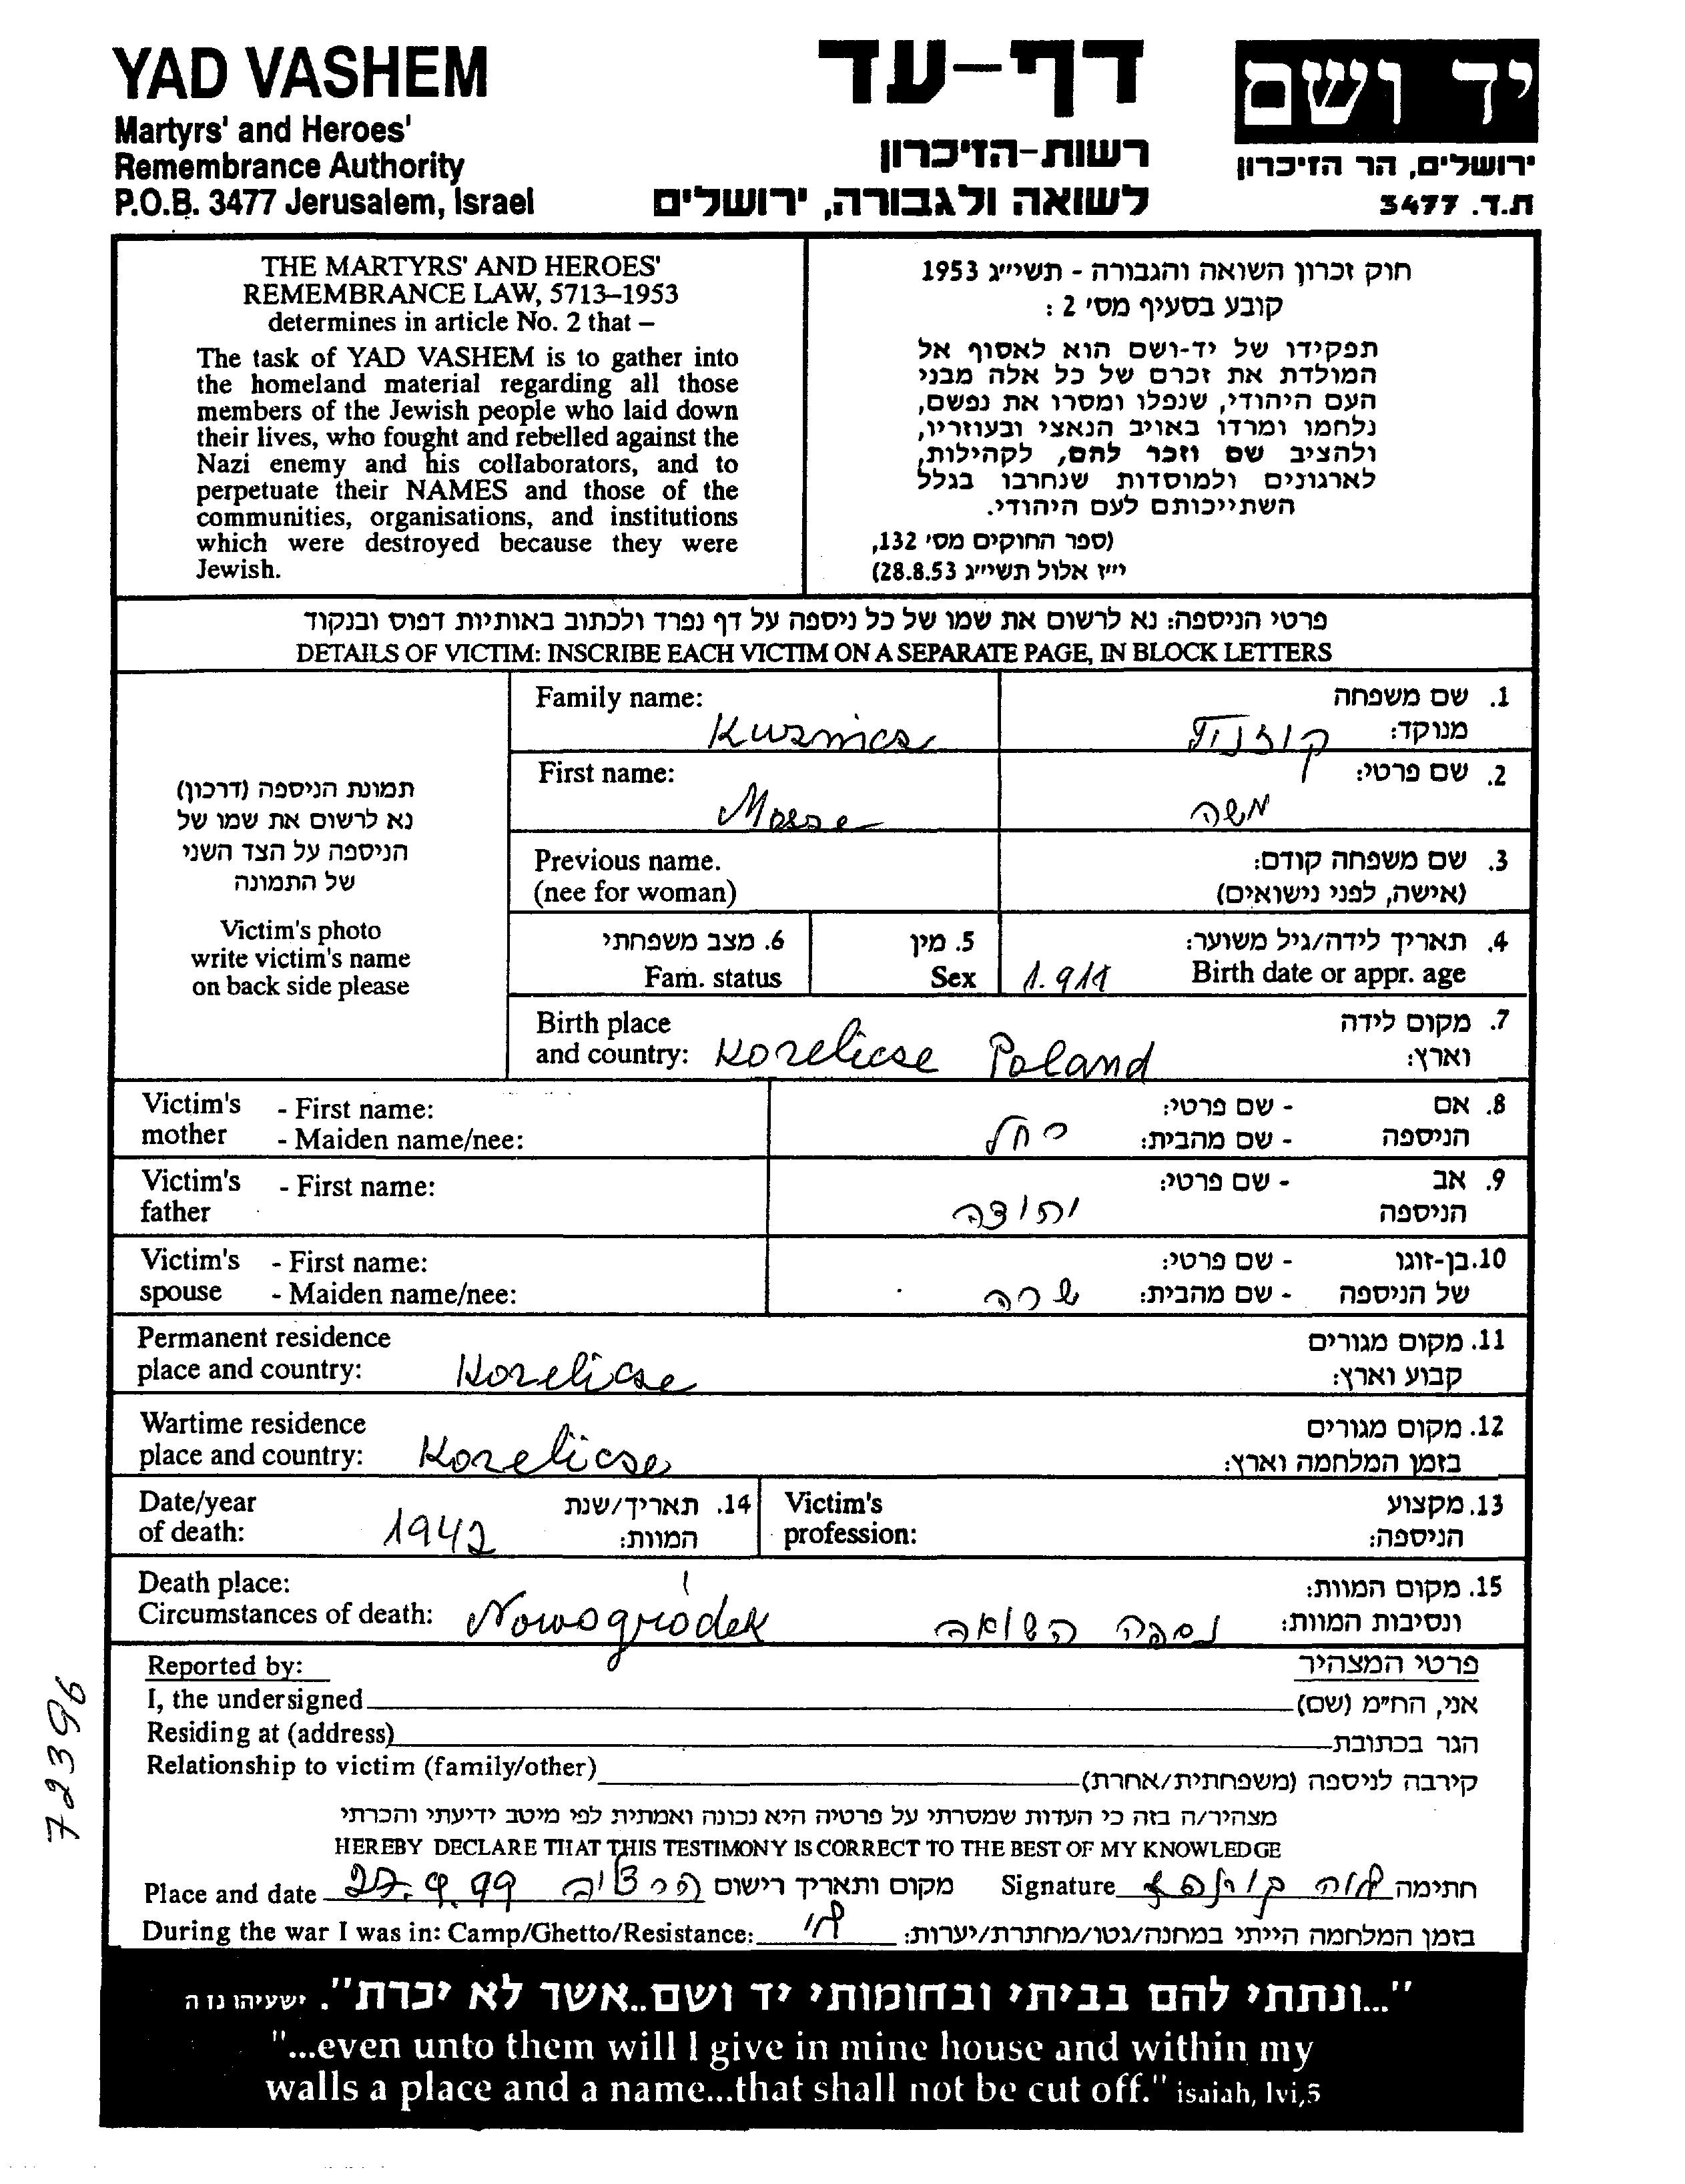 YAD VASHEM
Martyrs' and Heroes'
Remembrance Authority
P.O.B. 3477 Jerusalem, Israel
דף-עד
רשות-הזיכרון
לשואה ולגבורה, ירושלים
יד ושם
ירושלים, הר הזיכרון
ת.ד. 3477
THE MARTYRS' AND HEROES'
REMEMBRANCE LAW, 5713–1953
determines in article No. 2 that –
The task of YAD VASHEM is to gather into
the homeland material regarding all those
members of the Jewish people who laid down
their lives, who fought and rebelled against the
Nazi enemy and his collaborators, and to
perpetuate their NAMES and those of the
communities, organisations, and institutions
which were destroyed because they were
Jewish.
חוק זכרון השואה והגבורה - תשי״ג 1953
קובע בסעיף מס׳ 2 :
תפקידו של יד-ושם הוא לאסוף אל
המולדת את זכרם של כל אלה מבני
העם היהודי, שנפלו ומסרו את נפשם,
נלחמו ומרדו באויב הנאצי ובעוזריו,
ולהציב שם וזכר להם, לקהילות,
לארגונים ולמוסדות שנחרבו בגלל
השתייכותם לעם היהודי.
(ספר החוקים מס׳ 132,
י״ז אלול תשי״ג 28.8.53)
פרטי הניספה: נא לרשום את שמו של כל ניספה על דף נפרד ולכתוב באותיות דפוס ובנקוד
DETAILS OF VICTIM: INSCRIBE EACH VICTIM ON A SEPARATE PAGE, IN BLOCK LETTERS
תמונת הניספה (דרכון)
נא לרשום את שמו של
הניספה על הצד השני
של התמונה
Victim's photo
write victim's name
on back side please
Family name: 1. שם משפחה
Kuznica מנוקד:
First name: 2. שם פרטי:
Mosze משה
Previous name. 3. שם משפחה קודם:
(nee for woman) (אישה, לפני נישואים)
6. מצב משפחתי 5. מין 4. תאריך לידה/גיל משוער:
Fam. status Sex 1.911 Birth date or appr. age
Birth place 7. מקום לידה
and country: Korelicze Poland וארץ:
Victim's - First name: - שם פרטי: 8. אם
mother - Maiden name/nee: רחל - שם מהבית: הניספה
Victim's - First name: - שם פרטי: 9. אב
father יהודה הניספה
Victim's - First name: - שם פרטי: 10. בן-זוגו
spouse - Maiden name/nee: שרה - שם מהבית: של הניספה
Permanent residence 11. מקום מגורים
place and country: Korelicze קבוע וארץ:
Wartime residence 12. מקום מגורים
place and country: Korelicze בזמן המלחמה וארץ:
Date/year 14. תאריך/שנת Victim's 13. מקצוע
of death: 1942 המוות: profession: הניספה:
Death place: 15. מקום המוות:
Circumstances of death: Nowogródek נספה השואה ונסיבות המוות:
Reported by: פרטי המצהיר
I, the undersigned אני, הח״מ (שם)
Residing at (address) הגר בכתובת
Relationship to victim (family/other) קירבה לניספה (משפחתית/אחרת)
מצהיר/ה בזה כי העדות שמסרתי על פרטיה היא נכונה ואמתית לפי מיטב ידיעתי והכרתי
HEREBY DECLARE THAT THIS TESTIMONY IS CORRECT TO THE BEST OF MY KNOWLEDGE
Place and date 27.4.99 הרצליה מקום ותאריך רישום Signature חתימה
During the war I was in: Camp/Ghetto/Resistance: בזמן המלחמה הייתי במחנה/גטו/מחתרת/יערות:
"...ונתתי להם בביתי ובחומותי יד ושם..אשר לא יכרת". ישעיהו נו ה
"...even unto them will I give in mine house and within my
walls a place and a name...that shall not be cut off." isaiah, lvi,5
72396